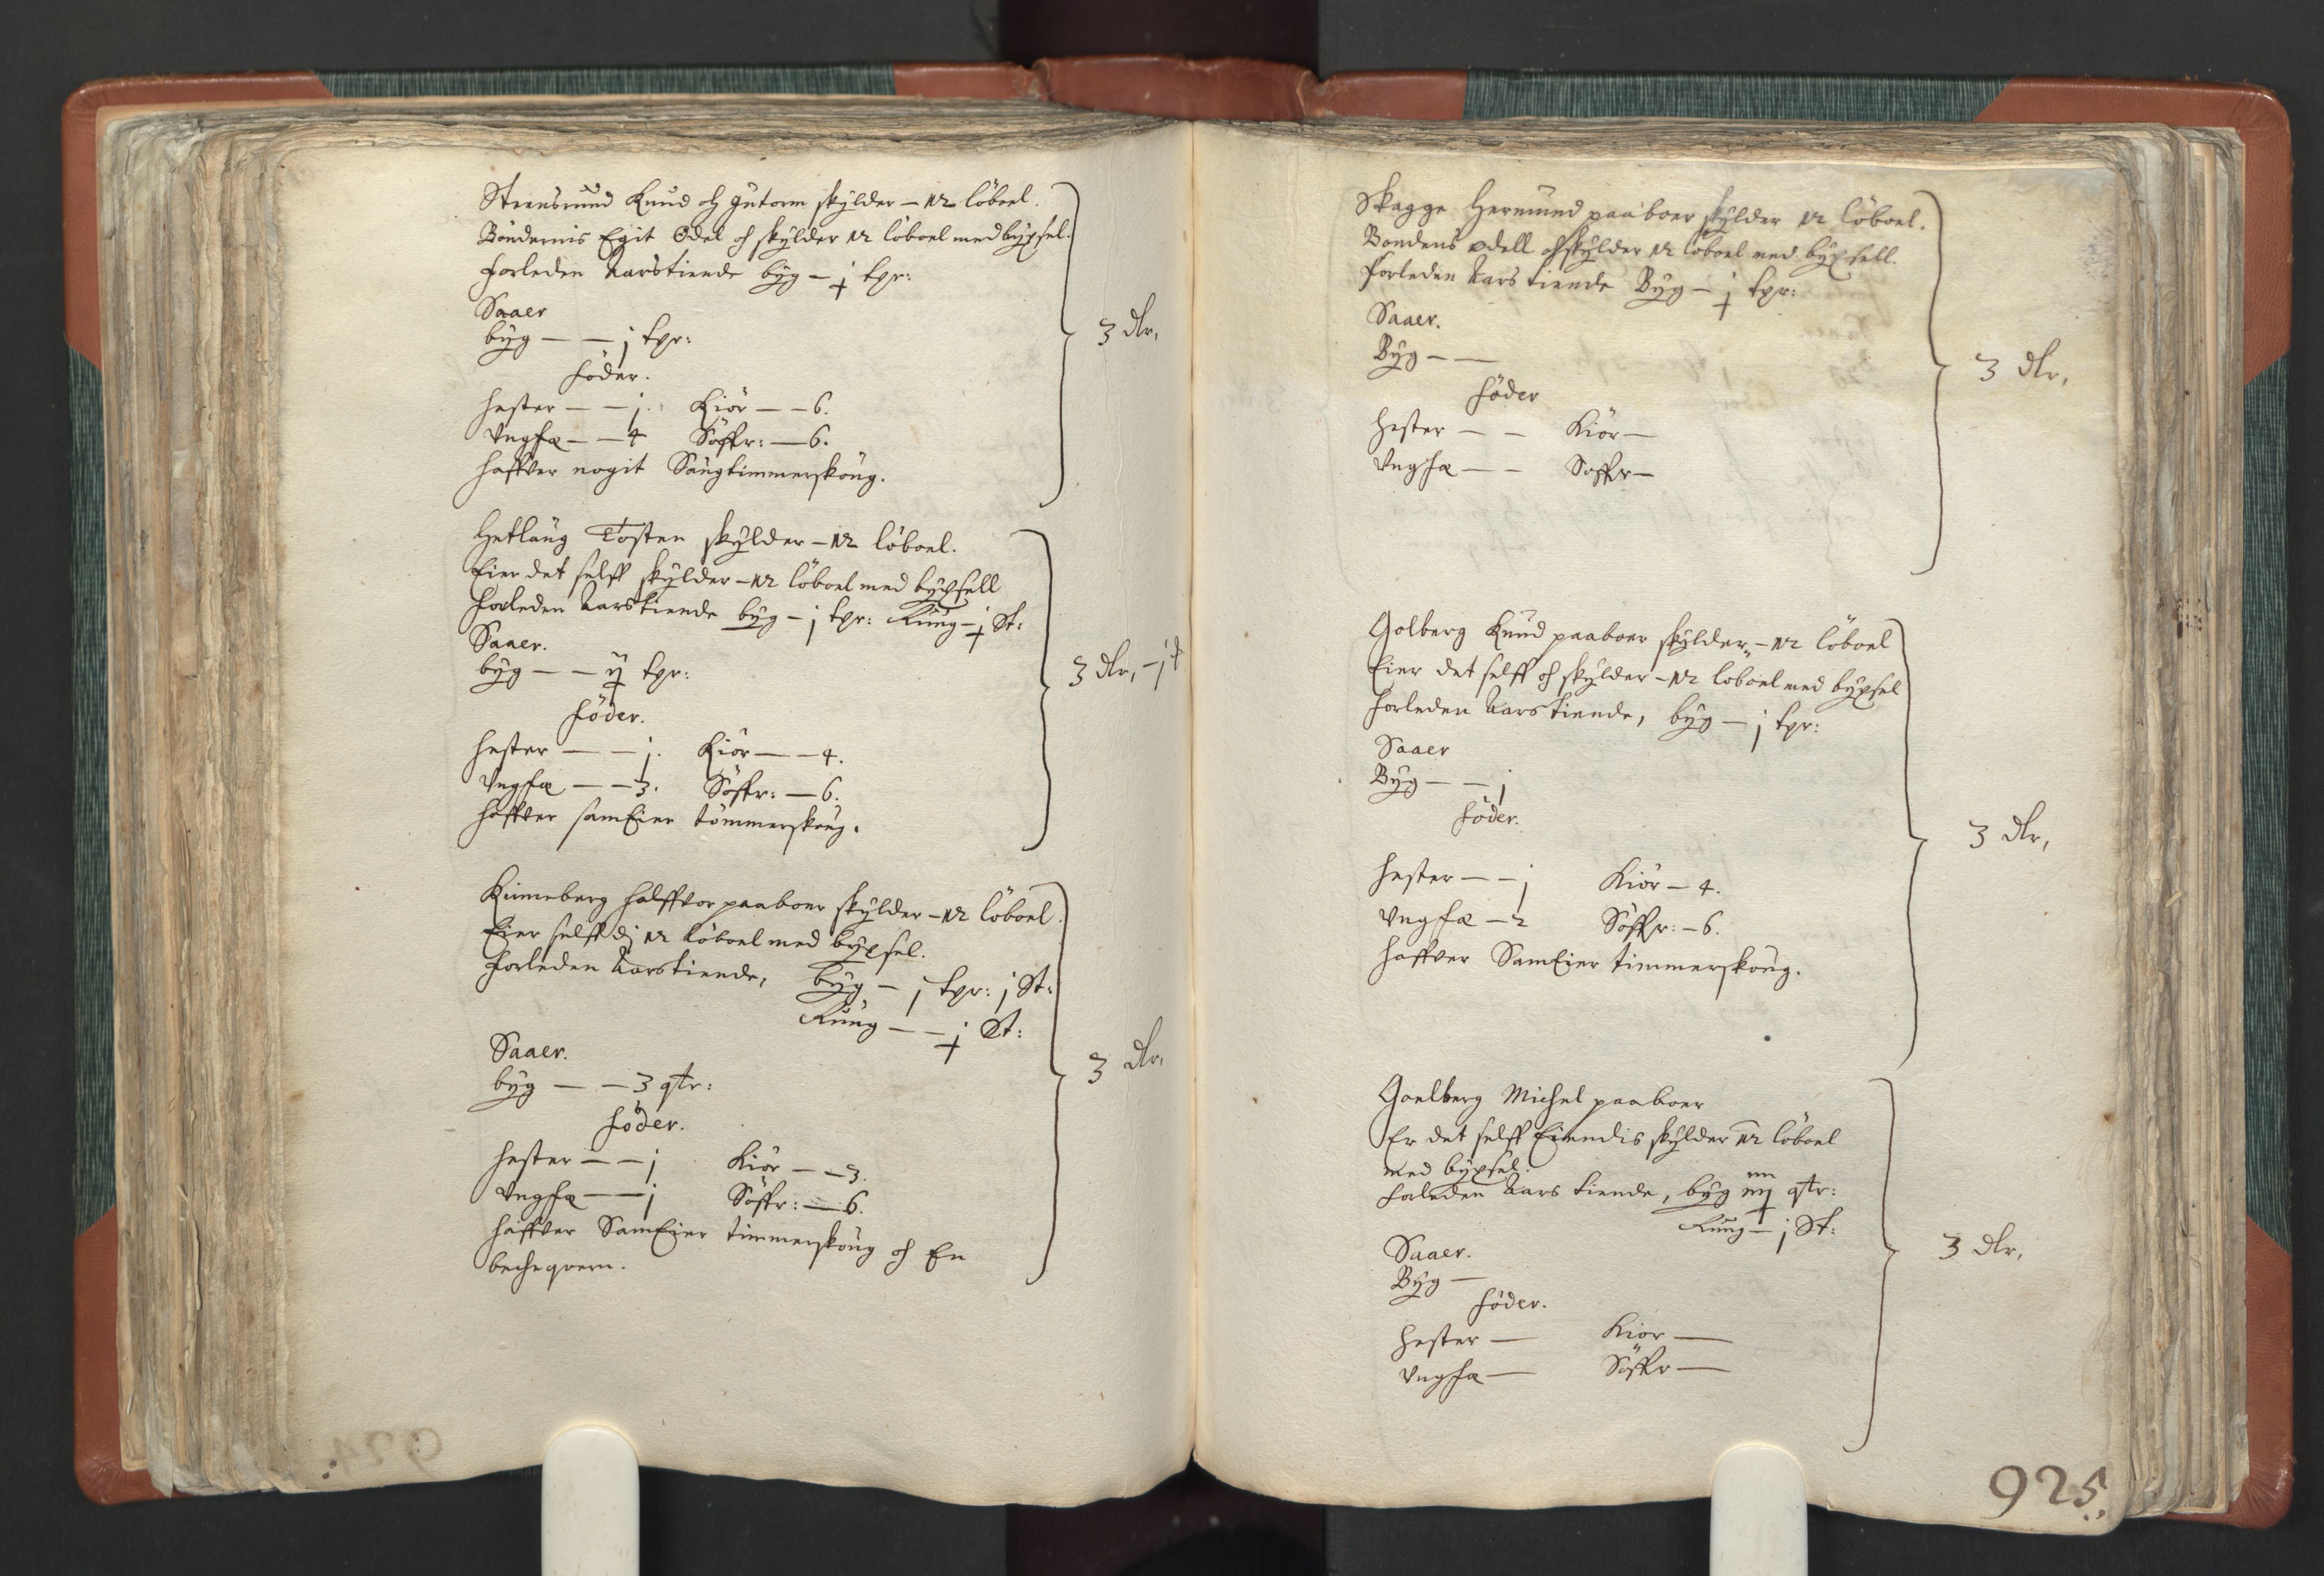 Steensrund Knud och Gutorm skylder – 12 löboel.
Böndernis Egit Odel och skylder 12 löboel med byxsel.
Forleden Aars tiende byg – j tpr:
Saaer
byg – – j tpr:
föder.
hester – – j. Kiör – – 6.
Vngfæ – – 4 Söffr: – 6.
haffver nogit Saugtimmerskoug.
3 dlr.
Hetlaug Tosten skylder – 12 löboel.
Eier det selff skylder – 12 löboel med byxsell
Forleden Aars tiende byg – j tpr: Rung – j St:
Saaer.
byg – – ij tpr:
föder.
hester – – j. Kiör – – 4.
Vngfæ – – 3. Söffr: – 6.
haffver samEier tömmerskoug.
3 dlr, – j
Kinneberg halffvor paaboer skylder – 12 löboel.
Eier selff dj 12 löboel med byxsel.
Forleden Aars tiende, byg – j tpr: j St:
Rung – – j St:
Saaer.
byg – – 3 qtr:
föder.
hester – – j Kiör – – 3.
Vngfæ – – j Söffr: – 6.
haffver SamEier timmerskoug och En
bechequern.
3 dlr.
924
Skagge Hermund paaboer skylder 12 löboel.
Bondens odell och skylder 12 löboel med byxsell.
Forleden Aars tiende Byg – j tpr:
Saaer.
Byg – –
föder
hester – – Kiör –
Vngfæ – – Soffr –
3 dlr.
Golberg Knud paaboer skylder – 12 löboel
Eier det selff och skylder – 12 loboel med byxsel
Forleden Aars tiende, byg – j tpr:
Saaer
Byg – – j
föder.
hester – – j Kiör – 4.
Vngfæ – 2 Söffr: – 6.
haffver SamEier timmerskoug.
3 dlr.
Goelberg Michel paaboer
Er det selff Eiendis skylder 12 löboel
med byxsel.
Forleden Aars tiende, byg iiij qtr:
Rung – j St:
Saaer.
Byg –
föder.
hester – Kior –
Vngfæ – Söffr –
3 dlr.
925.